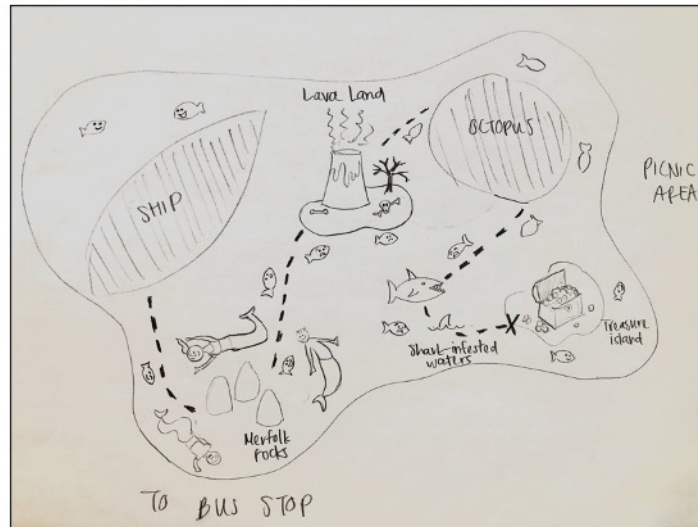 Lava Land
OCTOPUS
SHIP
PICNIC
AREA
Shark-infested
waters
X
Treasure
island
Merfolk
rocks
TO BUS STOP